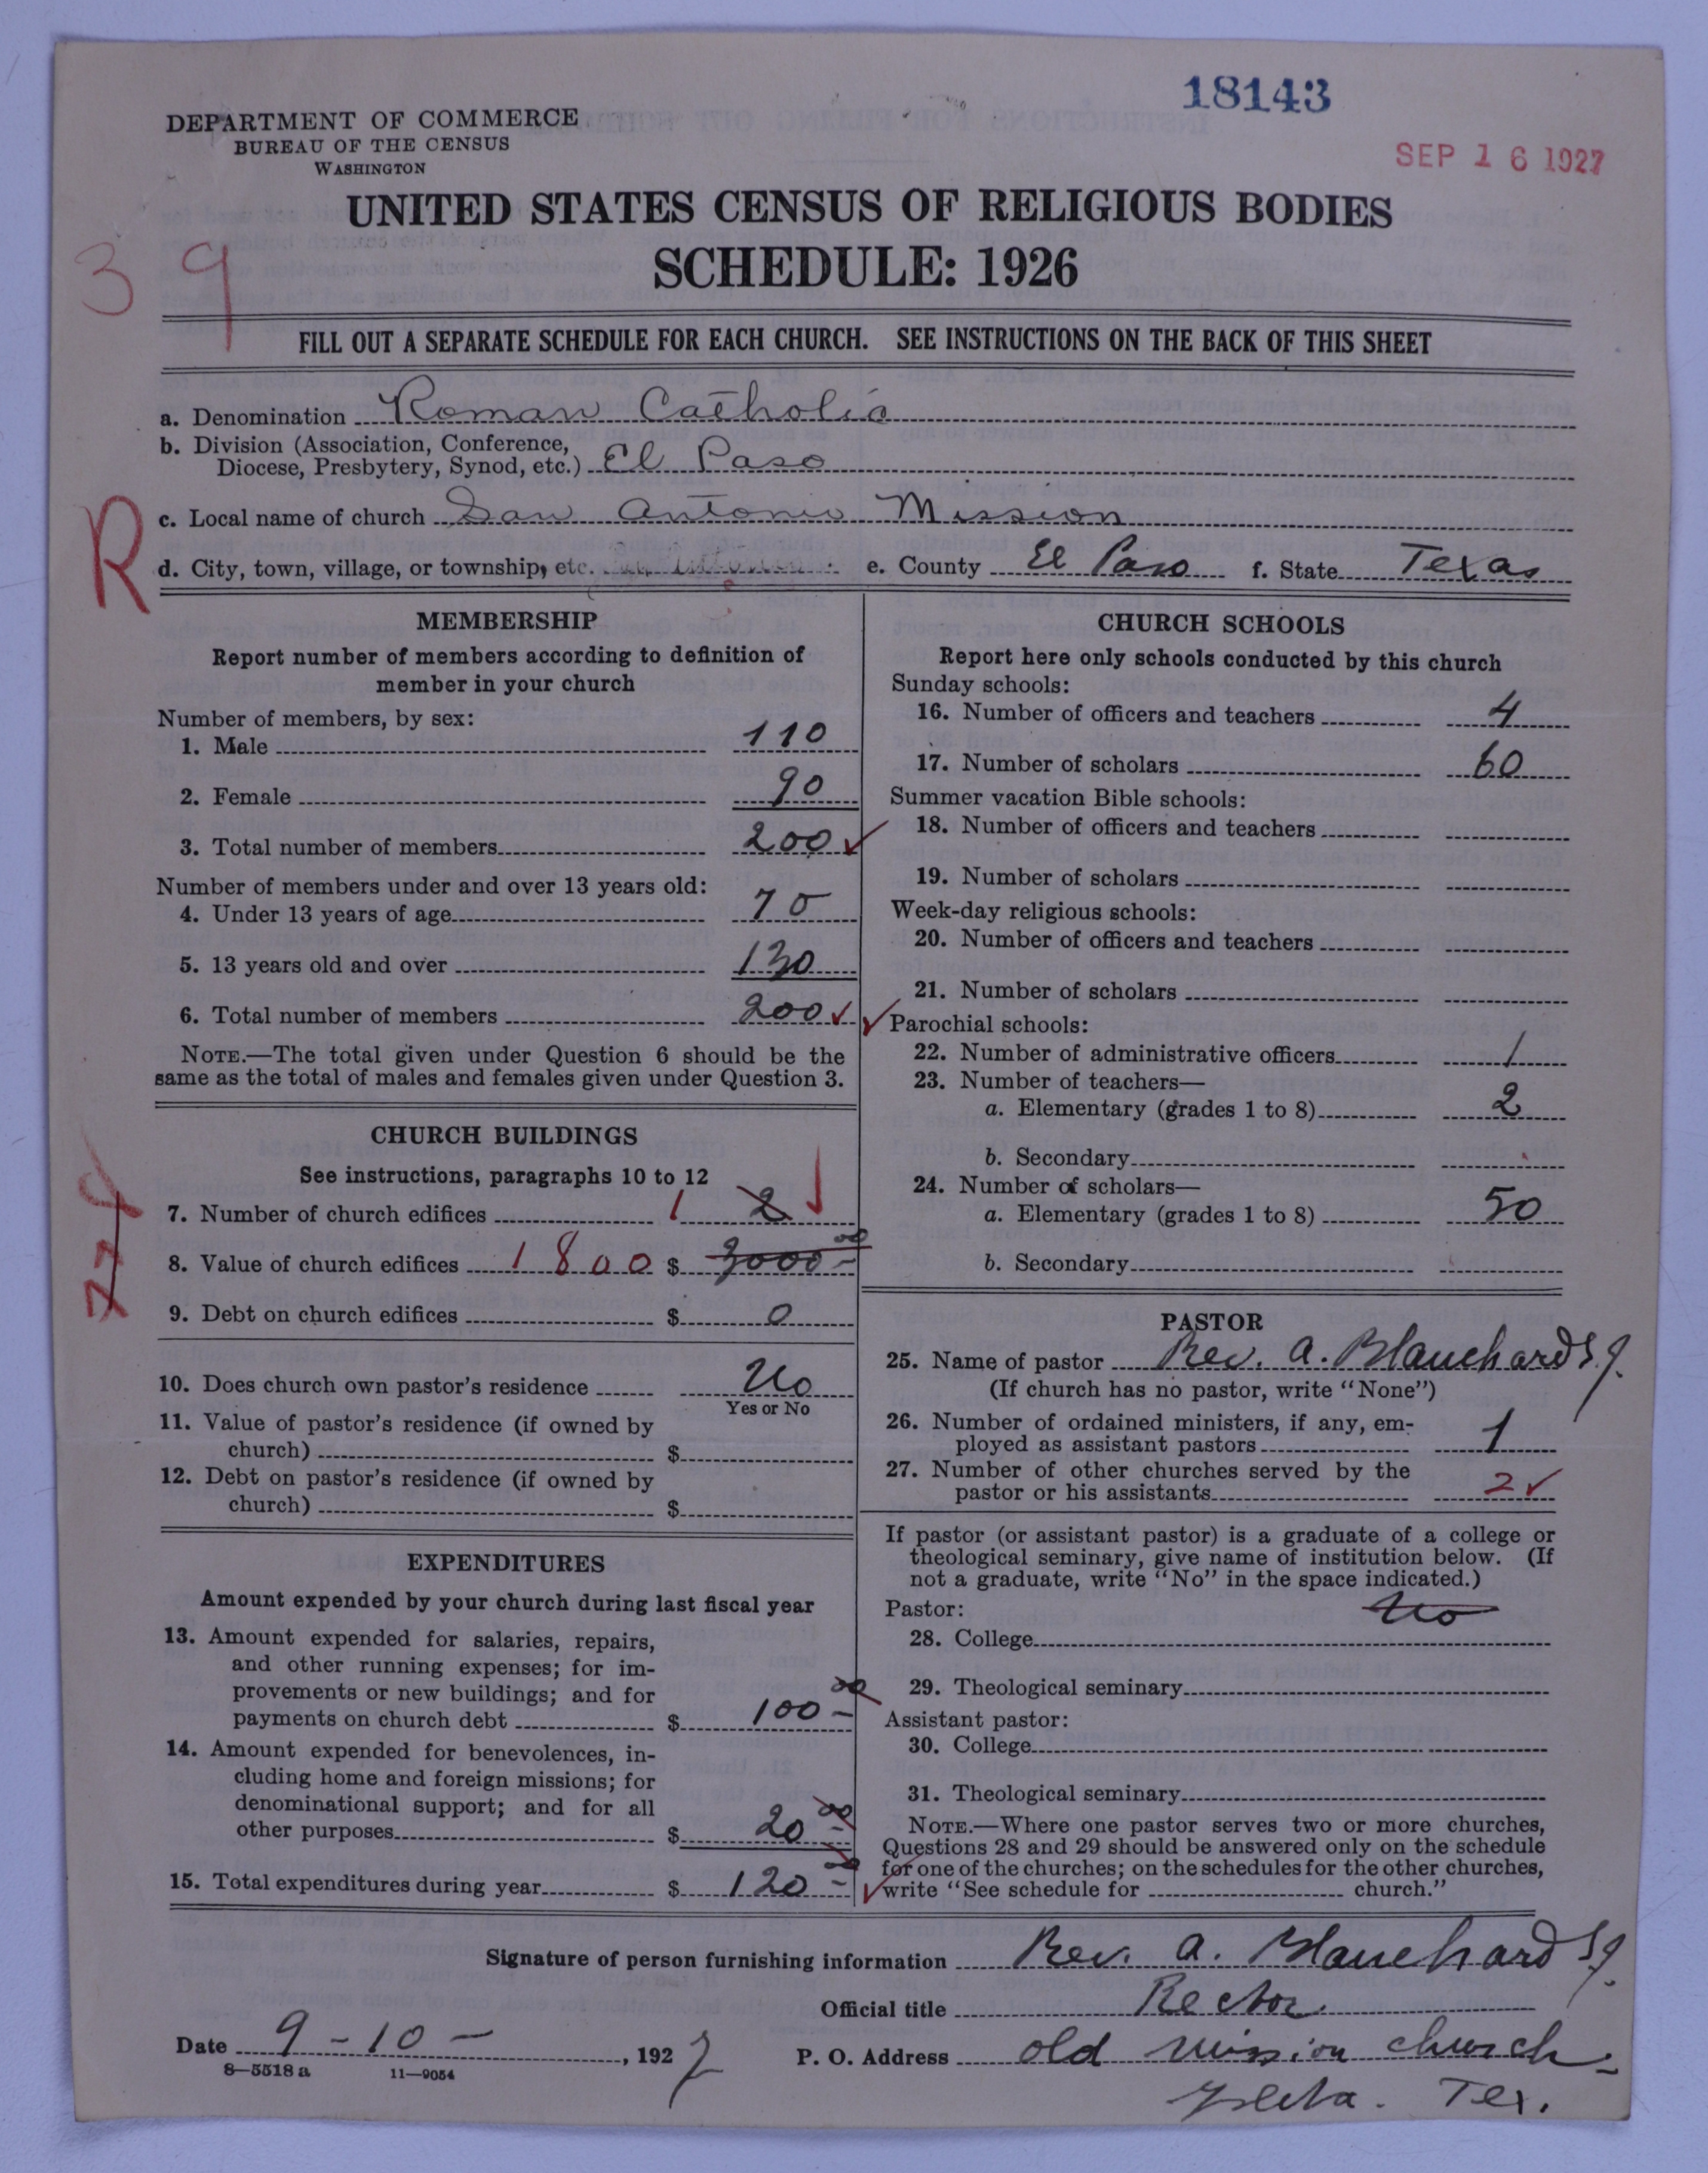 18143
DEPARTMENT OF COMMERCE
BUREAU OF THE CENSUS
WASHINGTON
SEP 16 1927
UNITED STATES CENSUS OF RELIGIOUS BODIES
SCHEDULE: 1926
39
FILL OUT A SEPARATE SCHEDULE FOR EACH CHURCH. SEE INSTRUCTIONS ON THE BACK OF THIS SHEET
a. Denomination Roman Catholic
b. Division (Association, Conference,
Diocese, Presbytery, Synod, etc.) El Paso
c. Local name of church San Antonio Mission
R
d. City, town, village, or township, etc. e. County El Paso f. State Texas
MEMBERSHIP
Report number of members according to definition of
member in your church
Number of members, by sex:
1. Male 110
2. Female 90
3. Total number of members 200 ✓
Number of members under and over 13 years old:
4. Under 13 years of age 70
5. 13 years old and over 130
6. Total number of members 200 ✓
NOTE.—The total given under Question 6 should be the
same as the total of males and females given under Question 3.
CHURCH BUILDINGS
See instructions, paragraphs 10 to 12
7. Number of church edifices 1 2
8. Value of church edifices 1800 $ 3000 00
9. Debt on church edifices $ 0
10. Does church own pastor's residence No
Yes or No
11. Value of pastor's residence (if owned by
church) $
12. Debt on pastor's residence (if owned by
church) $
EXPENDITURES
Amount expended by your church during last fiscal year
13. Amount expended for salaries, repairs,
and other running expenses; for im-
provements or new buildings; and for
payments on church debt $ 100 00
14. Amount expended for benevolences, in-
cluding home and foreign missions; for
denominational support; and for all
other purposes $ 20 00
15. Total expenditures during year $ 120 00
CHURCH SCHOOLS
Report here only schools conducted by this church
Sunday schools:
16. Number of officers and teachers 4
17. Number of scholars 60
Summer vacation Bible schools:
18. Number of officers and teachers
19. Number of scholars
Week-day religious schools:
20. Number of officers and teachers
21. Number of scholars
✓ Parochial schools:
22. Number of administrative officers 1
23. Number of teachers—
a. Elementary (grades 1 to 8) 2
b. Secondary
24. Number of scholars—
a. Elementary (grades 1 to 8) 50
b. Secondary
PASTOR
25. Name of pastor Rev. A. Blanchard S.J.
(If church has no pastor, write "None")
26. Number of ordained ministers, if any, em-
ployed as assistant pastors 1
27. Number of other churches served by the
pastor or his assistants 2 ✓
If pastor (or assistant pastor) is a graduate of a college or
theological seminary, give name of institution below. (If
not a graduate, write "No" in the space indicated.)
Pastor: No
28. College
29. Theological seminary
Assistant pastor:
30. College
31. Theological seminary
NOTE.—Where one pastor serves two or more churches,
Questions 28 and 29 should be answered only on the schedule
for one of the churches; on the schedules for the other churches,
✓ write "See schedule for church."
Signature of person furnishing information Rev. A. Blanchard S.J.
Official title Rector
Date 9-10-, 1927
P. O. Address old mission church
Ysleta. Tex.
8—5518 a 11—9054